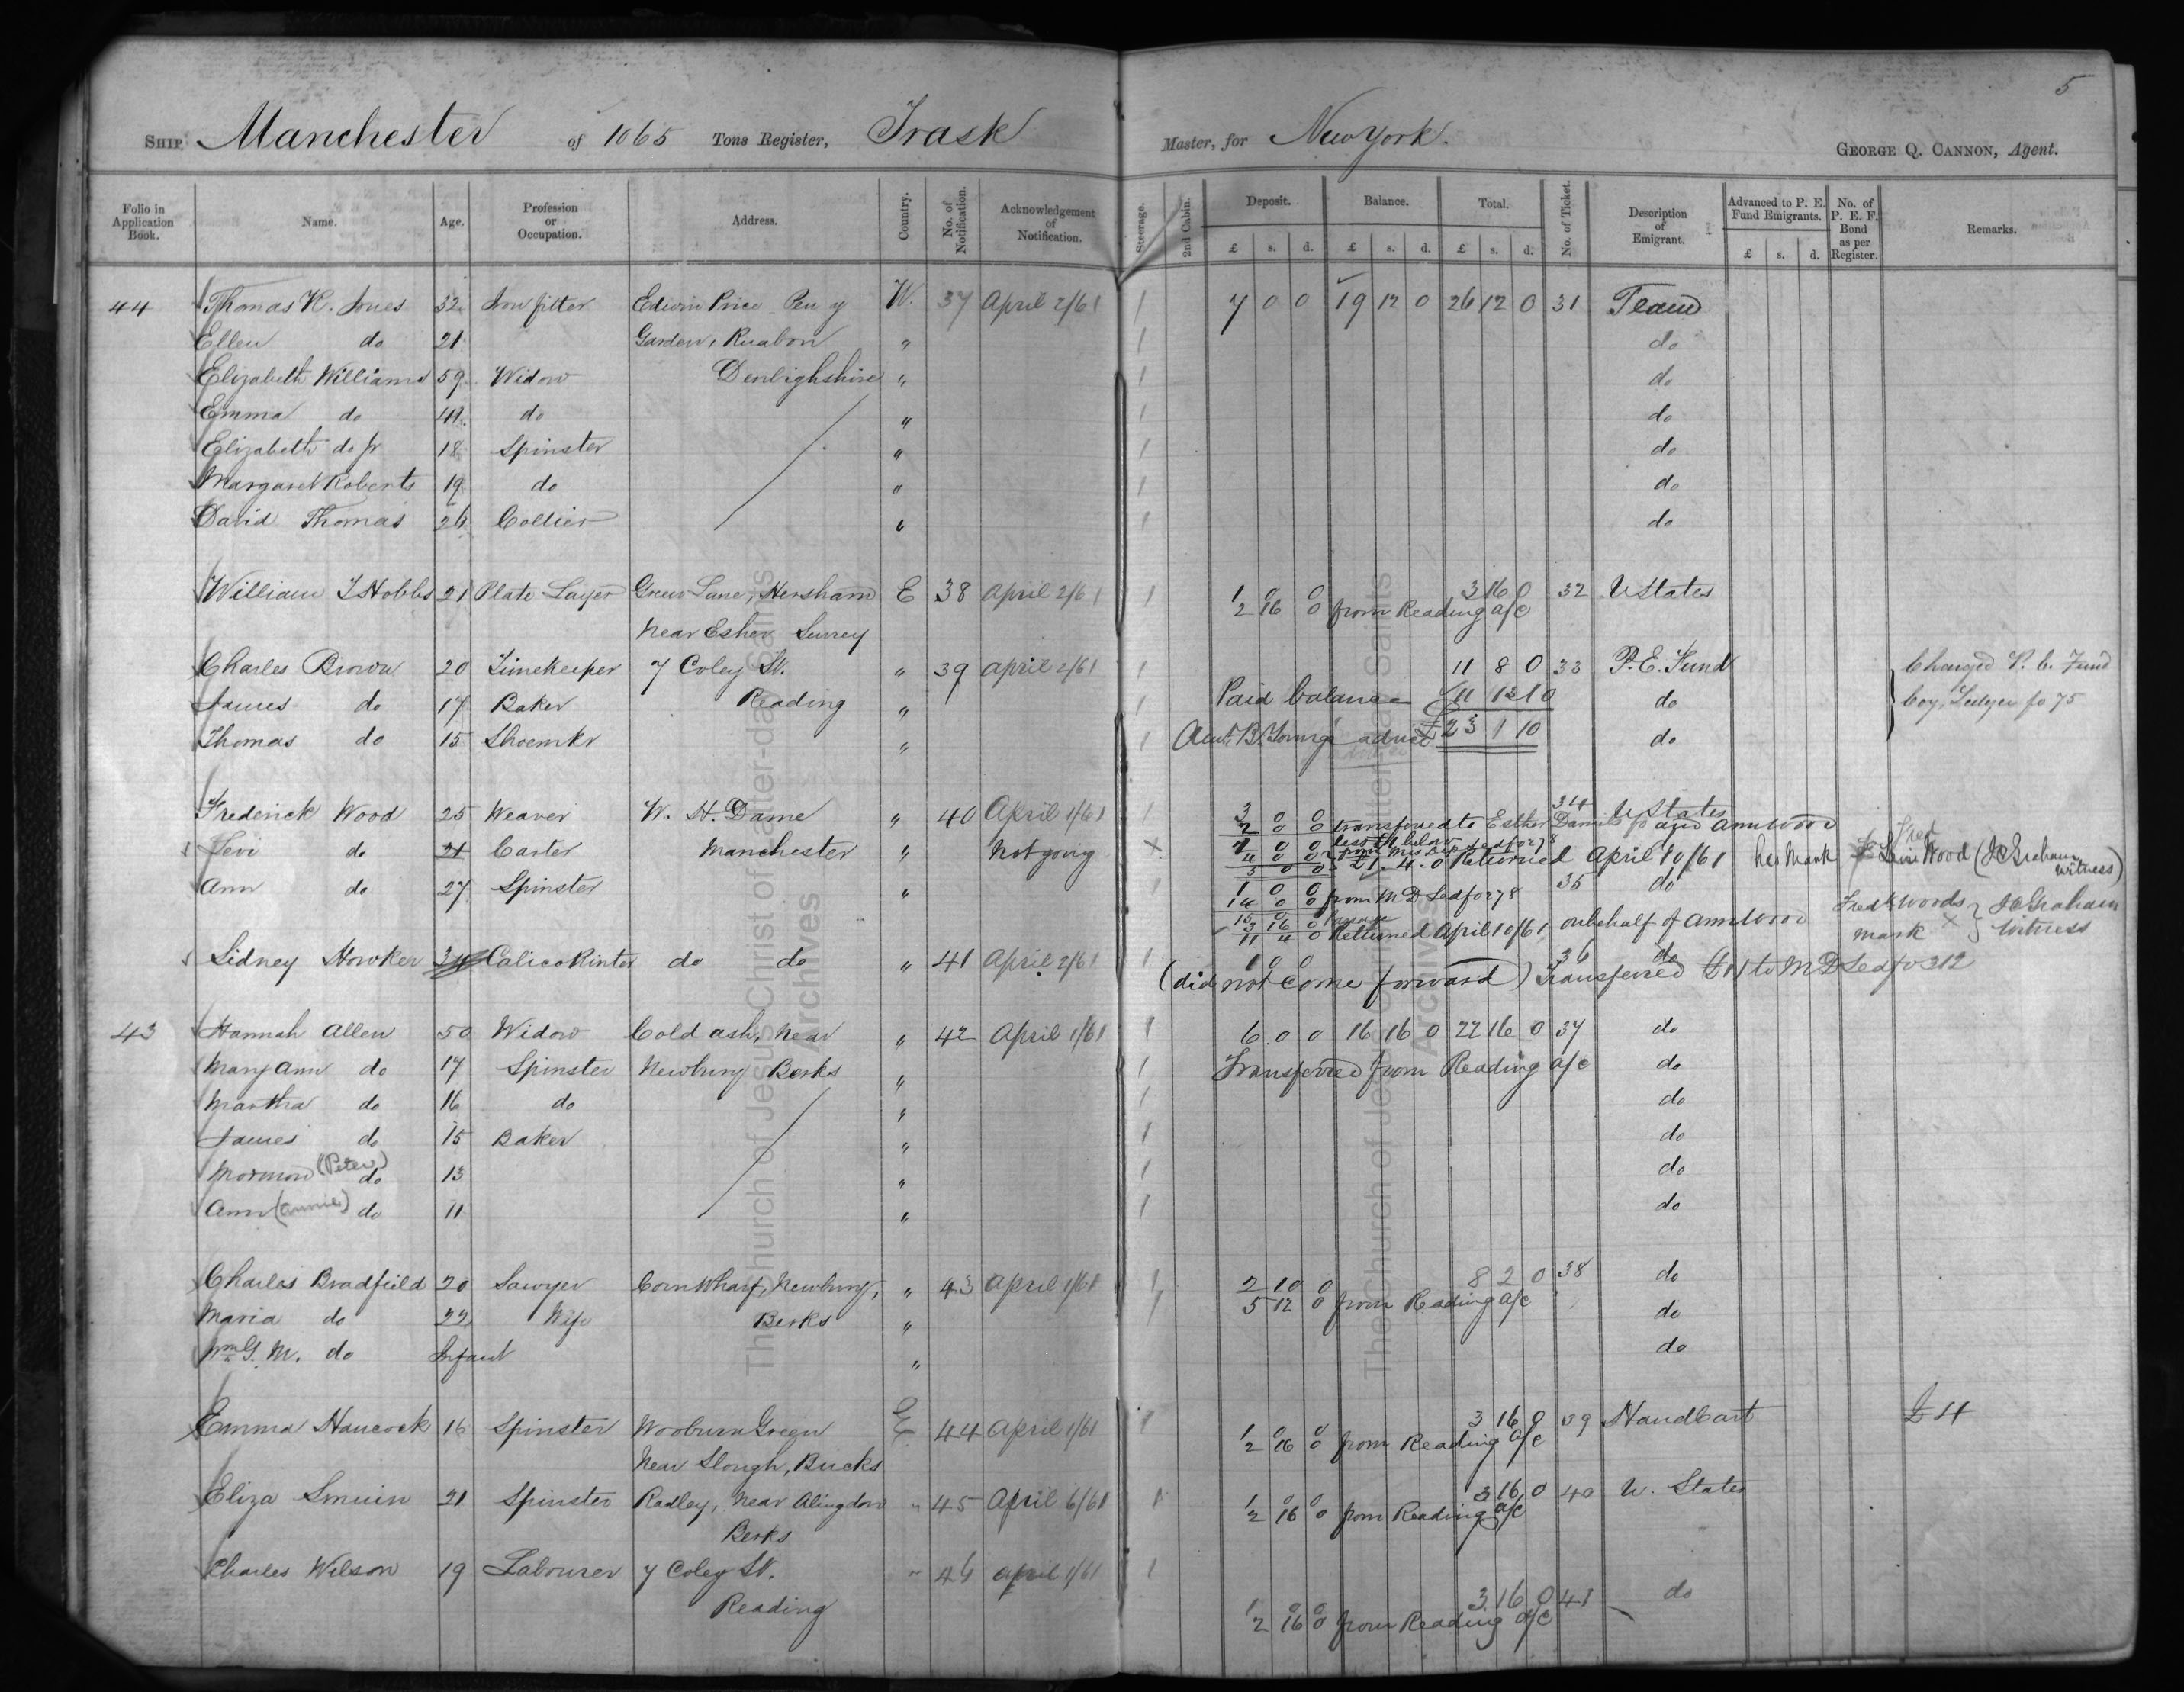 5
SHIP Manchester of 1065 Tons Register, Trask Master, for New York. GEORGE Q. CANNON, Agent.
Folio in Application Book. Name. Age. Profession or Occupation. Address. Country. No. of Notification. Acknowledgement of Notification. Steerage. 2nd Cabin. Deposit. £ s. d. Balance. £ s. d. Total. £ s. d. No. of Ticket. Description of Emigrant. Advanced to P. E. Fund Emigrants. £ s. d. No. of P. E. F. Bond as per Register. Remarks.
44 Thomas H. Jones 32 Iron fitter Edwin Price Pen y W. 37 April 2/61 1 7 0 0 19 12 0 26 12 0 31 Team
Ellen do 21 Garden, Ruabon " 1 do
Elizabeth Williams 59 Widow Denbighshire " 1 do
Emma do do " 1 do
Elizabeth do jr 18 Spinster " 1 do
Margaret Roberts 19 do " 1 do
David Thomas 26 Collier " 1 do
William J Hobbs 21 Plate Layer Green Lane, Hersham E 38 April 2/61 1 1 0 0 3 16 0 32 U States
2 16 0 from Reading a/c
near Esher Surrey
Charles Brown 20 Timekeeper 7 Coley St. " 39 April 2/61 1 11 8 0 33 P. E. Fund Charged P. E. Fund
James do 17 Baker Reading " 1 Paid balance 11 13 10 do Coy, Ledger fo 75
Thomas do 15 Shoemkr " 1 B. Young's £23 1 10 do
Frederick Wood 25 Weaver W. H. Dame " 40 April 1/61 1 3 0 0 34 U States
2 0 0 transferred to Esther Daniels and Ann Wood
Levi do 21 Carter Manchester " Not going X
£1. 4. 0 Returned April 10/61 his Mark Wood (J C Graham witness)
Ann do 27 Spinster " 1 1 0 0 35 do
14 0 0 from M D Led fo 278
15 0 0
3 16 0
11 4 0 Returned April 10/61 on behalf of Ann Wood Fredk Woods mark X J C Graham Witness
Sidney Howker Calico Printer do do " 41 April 2/61 1 1 0 0 36 do
(did not come forward) Transferred £1 to M D Led fo 312
43 Hannah Allen 50 Widow Cold ash, near " 42 April 1/61 1 6 0 0 16 16 0 22 16 0 37 do
Mary Ann do 17 Spinster Newbury Berks " 1 Transferred from Reading a/c do
Martha do 16 do " 1 do
James do 15 Baker " 1 do
Mormon (Peter) do 13 " 1 do
Ann (annie) do 11 " 1 do
Charles Bradfield 20 Sawyer Corn Wharf, Newbury, " 43 April 1/61 1 2 10 0 8 2 0 38 do
Maria do 22 Wife Berks " 1 5 12 0 from Reading a/c do
Wm G. M. do Infant " do
Emma Hancock 16 Spinster Wooburn Green E 44 April 1/61 1 1 0 0 3 16 0 39 Hand Cart £4
2 16 0 from Reading a/c
Near Slough, Bucks
Eliza Smuin 21 Spinster Radley, near Abingdon " 45 April 6/61 1 1 0 0 3 16 0 40 U. States
2 16 0 from Reading a/c
Berks
Charles Wilson 19 Labourer 7 Coley St. " 46 April 1/61 1
Reading 1 0 0 3 16 0 41 do
2 16 0 from Reading a/c
The Church of Jesus Christ of Latter-day Saints
Archives
The Church of Jesus Christ of Latter-day Saints
Archives